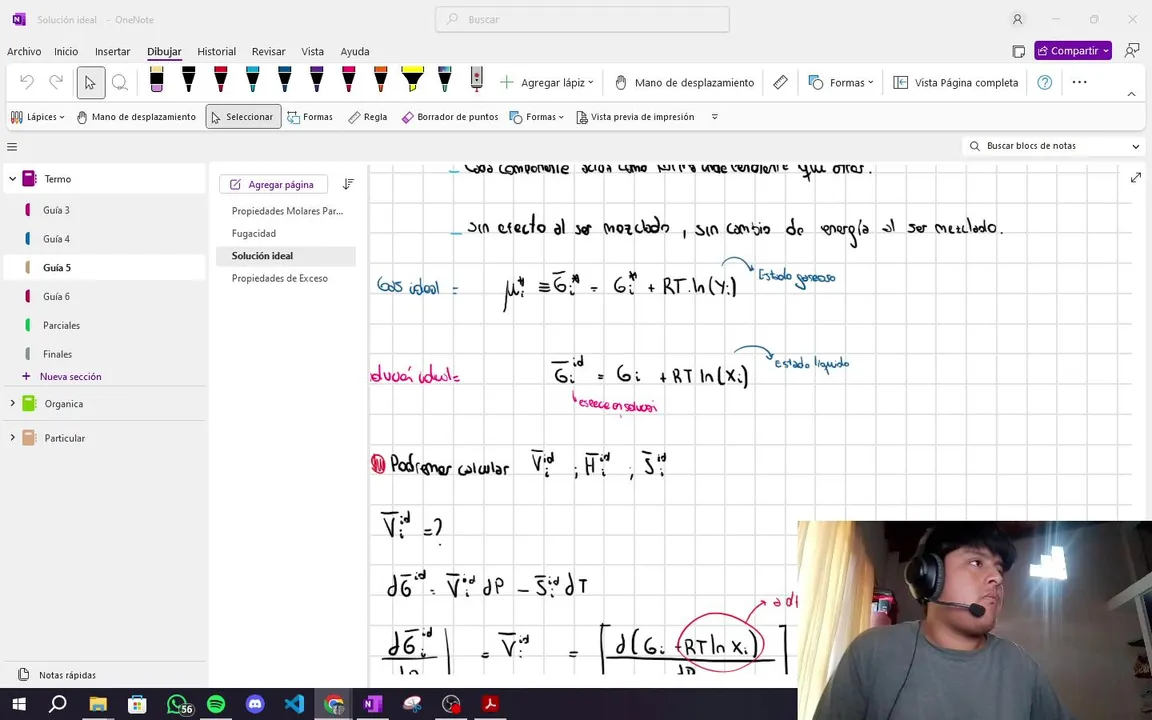 Solución ideal - OneNote
Buscar
Archivo Inicio Insertar Dibujar Historial Revisar Vista Ayuda
Compartir
Agregar lápiz
Mano de desplazamiento
Formas
Vista Página completa
Lápices
Mano de desplazamiento
Seleccionar
Formas
Regla
Borrador de puntos
Formas
Vista previa de impresión
Buscar blocs de notas
Termo
Guía 3
Guía 4
Guía 5
Guía 6
Parciales
Finales
Nueva sección
Organica
Particular
Notas rápidas
Agregar página
Propiedades Molares Par...
Fugacidad
Solución ideal
Propiedades de Exceso
_ Cada componente actúa como que otros.
_ Sin efecto al ser mezclado, sin cambio de energía al ser mezclado.
Gas ideal = μᵢ* ≡ G̅ᵢ* = Gᵢ* + RT.ln(yᵢ) Estado gaseoso
olución ideal = G̅ᵢ^id = Gᵢ + RT ln(xᵢ) Estado líquido
especie en
Podremos calcular V̅ᵢ^id ; H̅ᵢ^id ; S̅ᵢ^id
V̅ᵢ^id = ?
dG̅ᵢ^id = V̅ᵢ^id dP - S̅ᵢ^id dT
dG̅ᵢ^id | = V̅ᵢ^id = [ d(Gᵢ + RT ln xᵢ) ]
dP
56